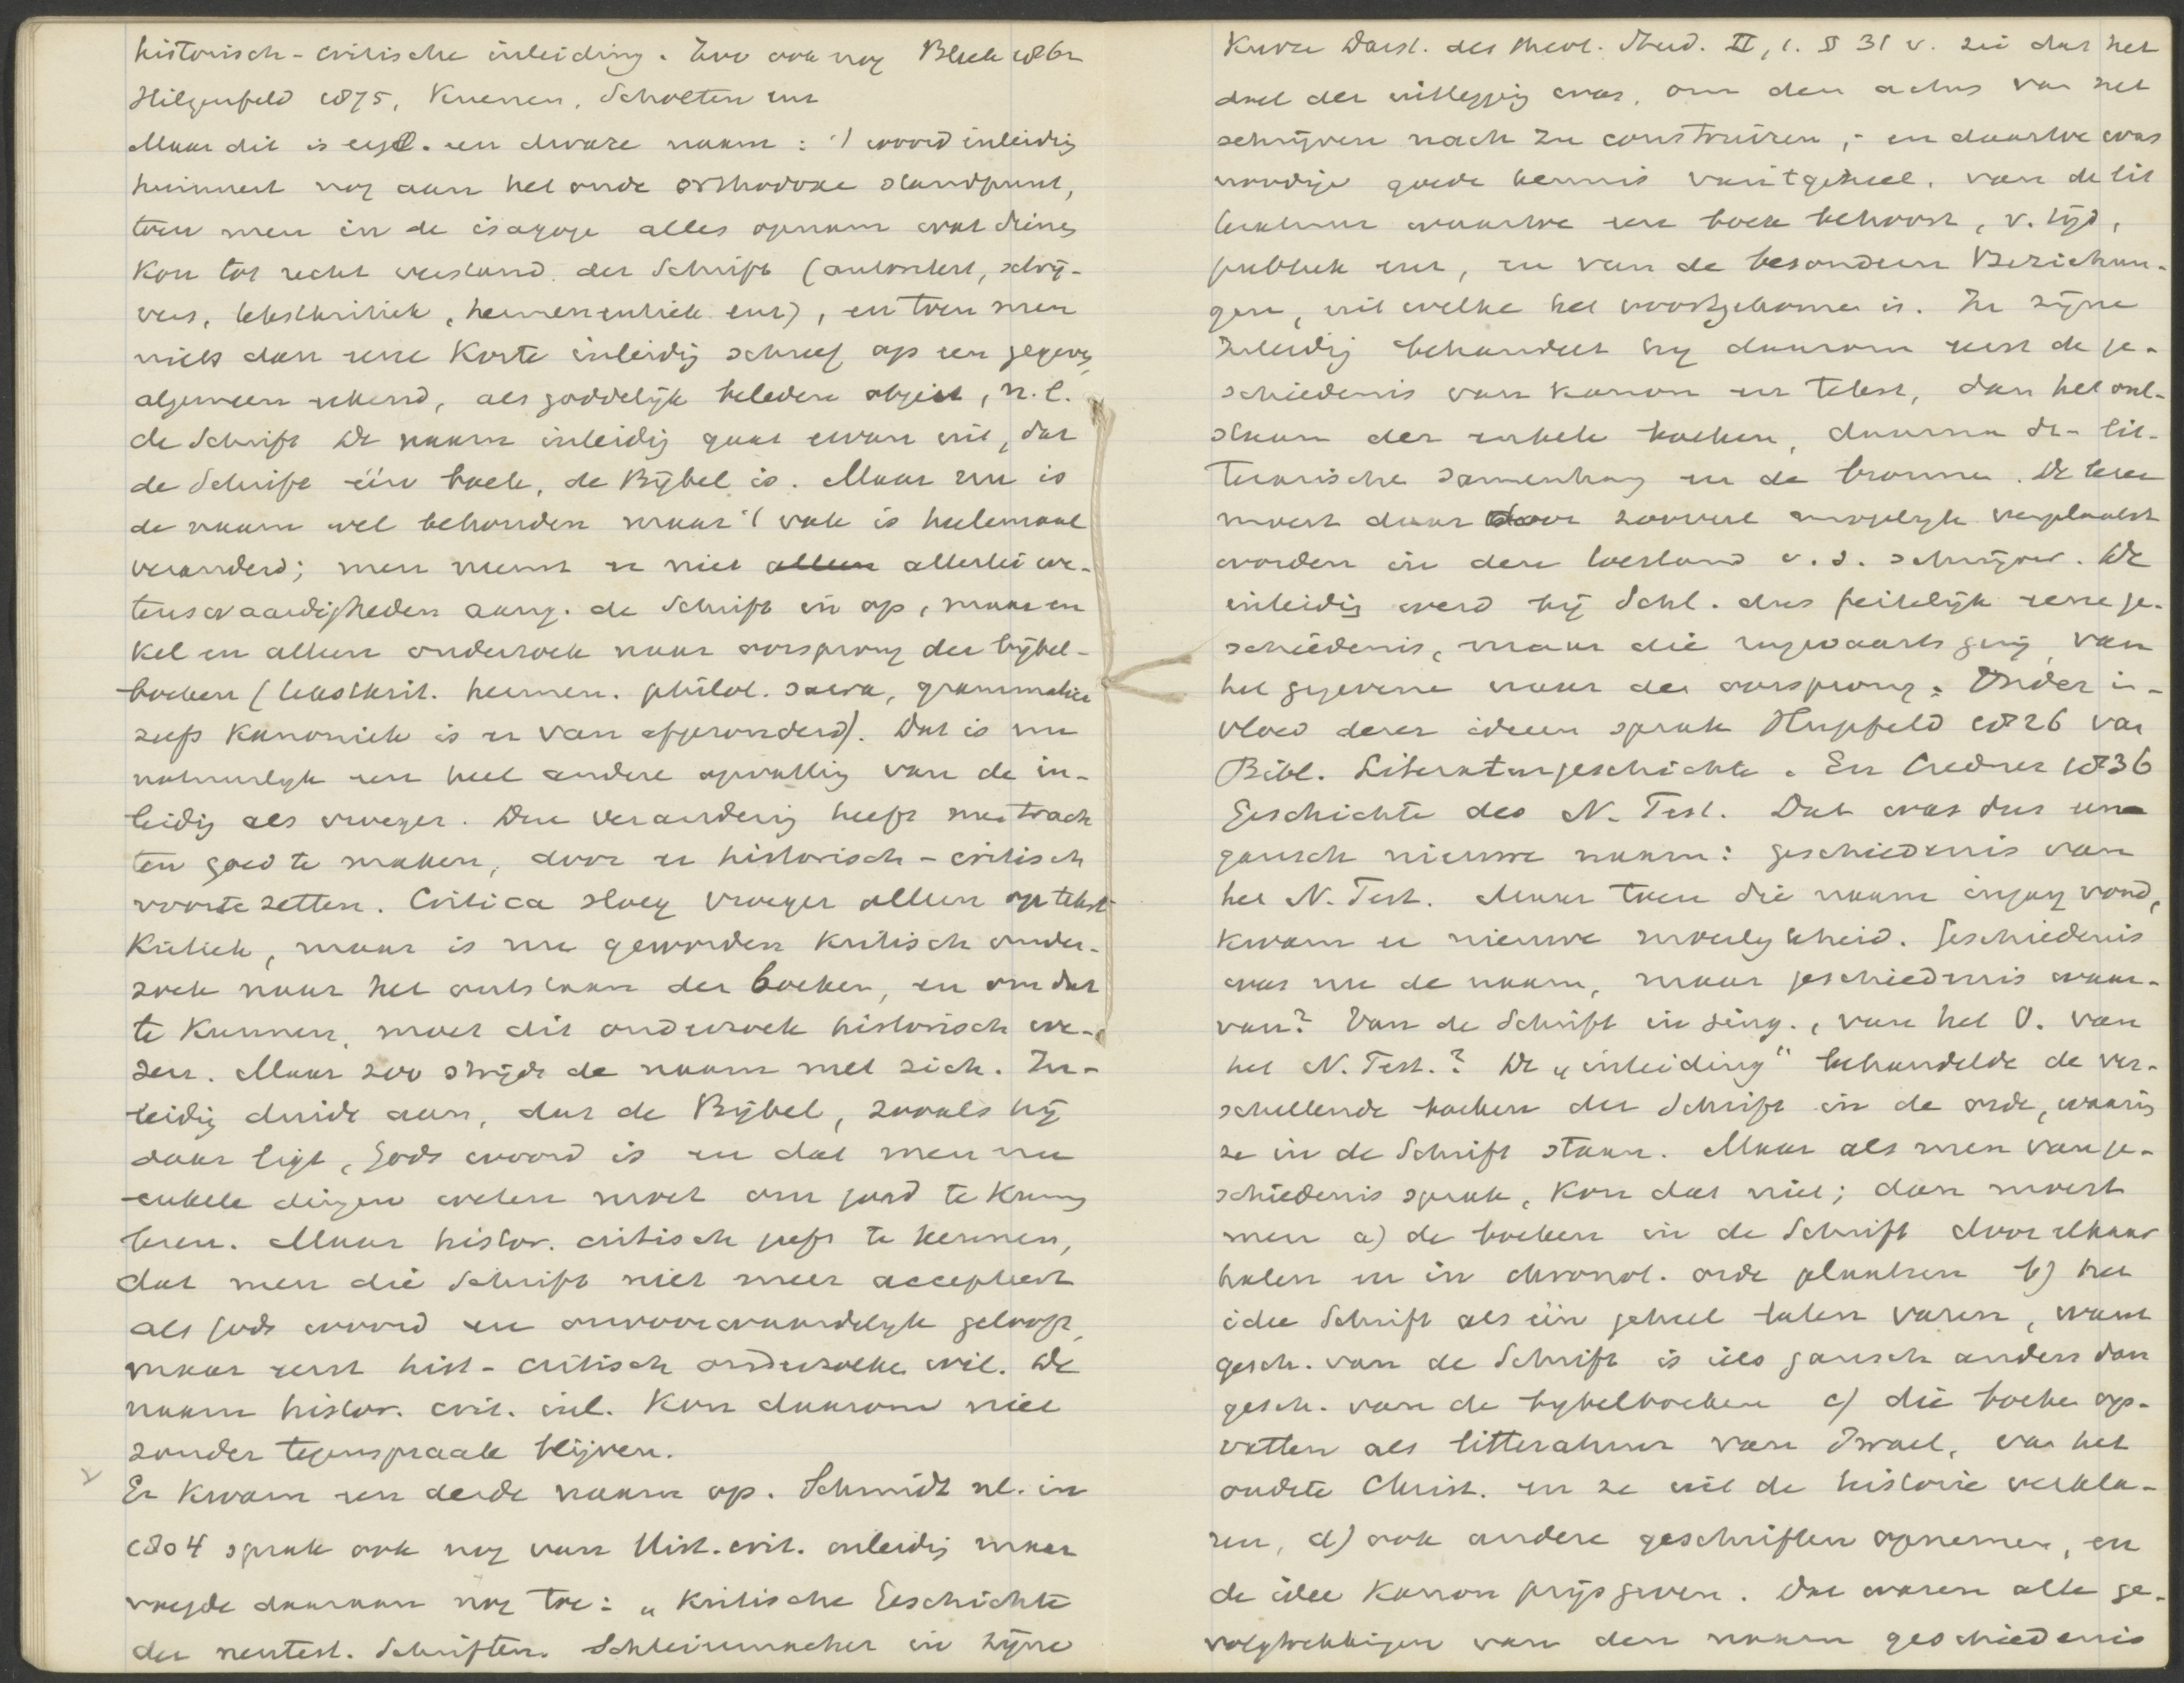 historisch-critische inleiding. Zoo ook nog Bleek 1862
Hilgenfeld 1875, Kuenen, Scholten enz
Maar dit is eigl. een dwaze naam: 't woord inleidig
herinnert nog aan het oude orthodoxe standpunt,
toen men in de isagoge alles opnam wat dienen
kon tot recht verstand der Schrift (autoriteit, schrij-
vers, tekstkritiek, hermeneutiek enz), en toen men
niets dan eene korte inleidig schreef op een gegeven,
algemeen erkend, als goddelijk beleden object, n.l.
de Schrift De naam inleidig gaat ervan uit, dat
de Schrift één boek, de Bijbel is. Maar nu is
de naam wel behouden maar 't vak is heelemaal
veranderd; men neemt er niet alleen allerlei we-
tenswaardigheden aang. de Schrift in op, maar en
kel en alleen onderzoek naar oorsprong der bijbel-
boeken (tekstkrit. hermen. philol. sacra, grammatica
zelfs kanoniek is er van afgezonderd). Dat is nu
natuurlijk een heel andere opvatting van de in-
leidig als vroeger. Deze verandering heeft men trach
ten goed te maken, door er historisch-critisch
voor te zetten. Critica sloeg vroeger alleen op tekst
kritiek, maar is nu geworden kritisch onder-
zoek naar het ontstaan der boeken, en om dat
te kunnen, moet dit onderzoek historisch we-
zen. Maar zoo strijdt de naam met zich. In-
leidig duidt aan, dat de Bijbel, zooals hij
daar ligt, Gods woord is en dat men nu
enkele dingen weten moet om goed te kunnen
lezen. Maar histor. critisch geeft te kennen,
dat men die Schrift niet meer accepteert
als Gods woord en onvoorwaardelijk gelooft,
maar eerst hist-critisch onderzoeken wil. De
naam histor. crit. inl. kon daarom niet
zonder tegenspraak blijven.
Er kwam een derde naam op. Schmidt nl. in
1804 sprak ook nog van Hist. crit. inleidig maar
voegde daaraan nog toe: „Kritische Geschichte
der neutest. Schriften. Schleiermacher in zijne
Kurze Darst. des theol. Stud. II, 1. § 31 v. zei dat het
doel der uitlegging was, om den actus van het
schrijven nach zu construiren, - en daartoe was
noodig goede kennis van 't geheel. van de lit
teratuur waartoe een boek behoort, v. tijd,
publiek enz, en van de besondern Beziehun-
gen, uit welke het voortgekomen is. In zijne
Inleidig behandelt hij daarom eerst de ge-
schiedenis van kanon en tekst, dan het ont-
staan der enkele boeken, daarna de lit-
terarische samenhang en de bronnen. De lezer
moest daar door zooveel mogelijk verplaatst
worden in den toestand v. d. schrijver. De
inleidig werd bij Schl. dus feitelijk eene ge-
schiedenis, maar die rugwaarts ging, van
het gegevene naar den oorsprong. Onder in-
vloed dezer ideeen sprak Hupfeld 1826 van
Bibl. Literaturgeschichte. En Credner 1836
Geschichte des N. Test. Dat was dus een
gansch nieuwe naam: geschiedenis van
het N. Test. Maar toen die naam ingang vond,
kwam er nieuwe moeilykheid. Geschiedenis
was nu de naam, maar geschiedenis waar-
van? Van de Schrift in sing., van het O. van
het N. Test.? De „inleiding" behandelde de ver-
schillende boeken der Schrift in de orde, waarin
ze in de Schrift staan. Maar als men van ge-
schiedenis sprak, kon dat niet; dan moest
men a) de boeken in de Schrift door elkaar
halen en in chronol. orde plaatsen b) het
idee Schrift als één geheel laten varen, want
gesch. van de Schrift is iets gansch anders dan
gesch. van de bybelboeken c) die boeken op-
vatten als litteratuur van Israel, van het
oudste Christ. en ze uit de historie verkla-
ren, d) ook andere geschriften opnemen, en
de idee kanon prijs geven. Dat waren alle ge-
volgtrekkingen van den naam geschiedenis